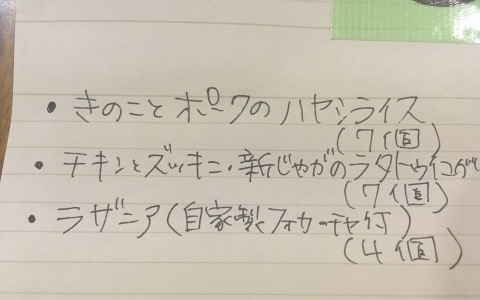 ・きのことポークのハヤシライス
(7個)
・チキンとズッキーニ・新じゃがのラタトゥイユ
(7個)
・ラザニア(自家製フォカッチャ付)
(4個)